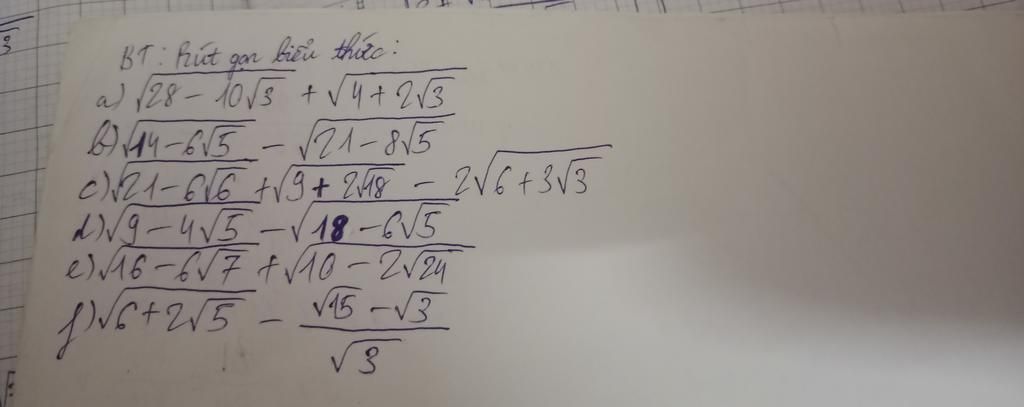 BT: Rút gọn biểu thức:
a) √28 - 10√3 + √4 + 2√3
b) √14 - 6√5 - √21 - 8√5
c) √21 - 6√6 + √9 + 2√18 - 2√6 + 3√3
d) √9 - 4√5 - √18 - 6√5
e) √16 - 6√7 + √10 - 2√24
f) √6 + 2√5 - (√15 - √3)/√3